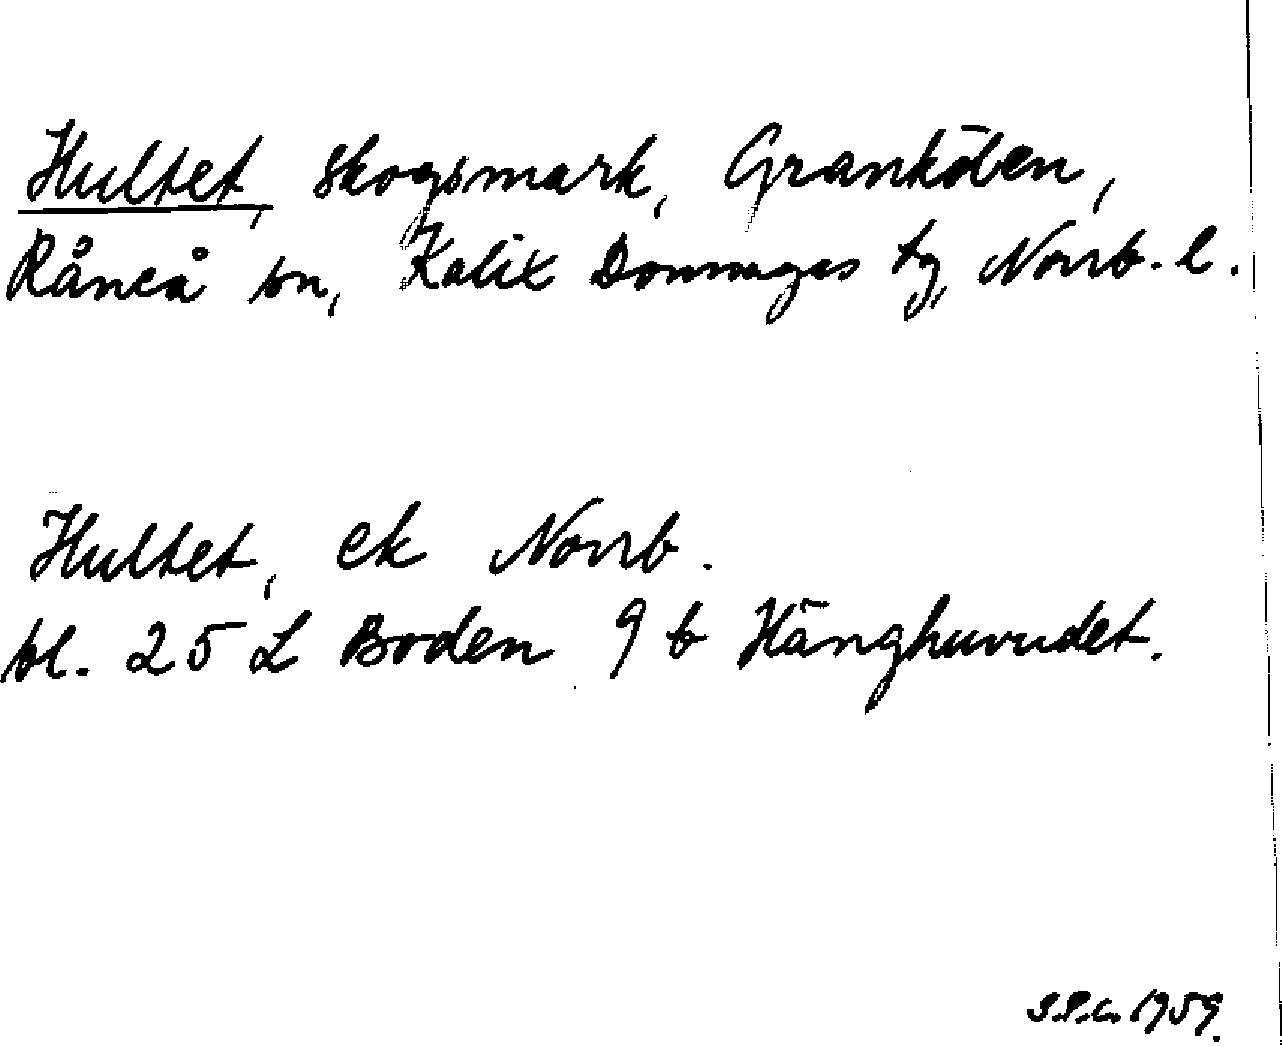 Hultet, skogsmark, Grankölen,
Råneå sn, Kalix Domsagas tg, Norrb. l.
Hultet, ek Norrb.
bl. 25 L Boden 9 b Hänghuvudet.
S.P.G. 1959.